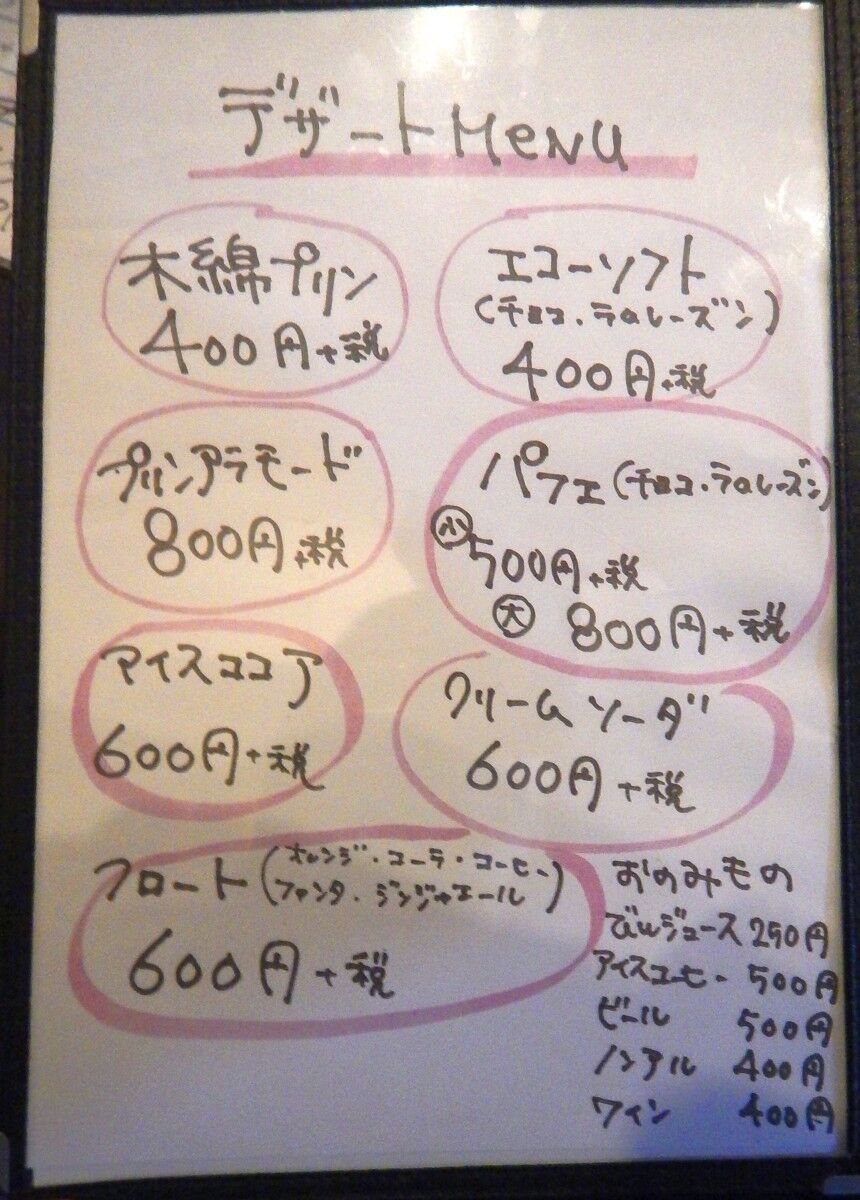 デザートMENU
木綿プリン
400円+税
エコーソフト
(チョコ・ラムレーズン)
400円+税
プリンアラモード
800円+税
パフェ(チョコ・ラムレーズン)
小 500円+税
大 800円+税
アイスココア
600円+税
クリームソーダ
600円+税
フロート(オレンジ・コーラ・コーヒー
ファンタ・ジンジャエール)
600円+税
おのみもの
びんジュース 250円
アイスコーヒー 500円
ビール 500円
ノンアル 400円
ワイン 400円